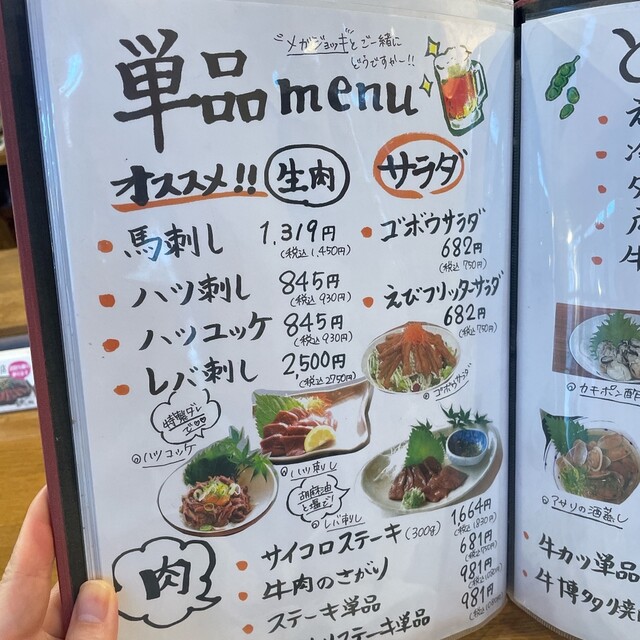 "メガジョッキ"とご一緒に
どうですかー!!
単品menu
オススメ!! 生肉
馬刺し 1,319円
(税込 1,450円)
ハツ刺し 845円
(税込 930円)
ハツユッケ 845円
(税込 930円)
レバ刺し 2,500円
(税込 2750円)
サラダ
ゴボウサラダ
682円
(税込 750円)
えびフリッターサラダ
682円
(税込 750円)
ゴボウサラダ
特製ダレで
ハツユッケ
ハツ刺し
胡麻油と塩で!
レバ刺し
肉
サイコロステーキ(300g) 1,664円
(税込 1830円)
牛肉のさがり 681円
ステーキ単品 981円
ステーキ単品 981円
カキポン酢
アサリの酒蒸し
牛カツ単品
牛博多タタリ焼